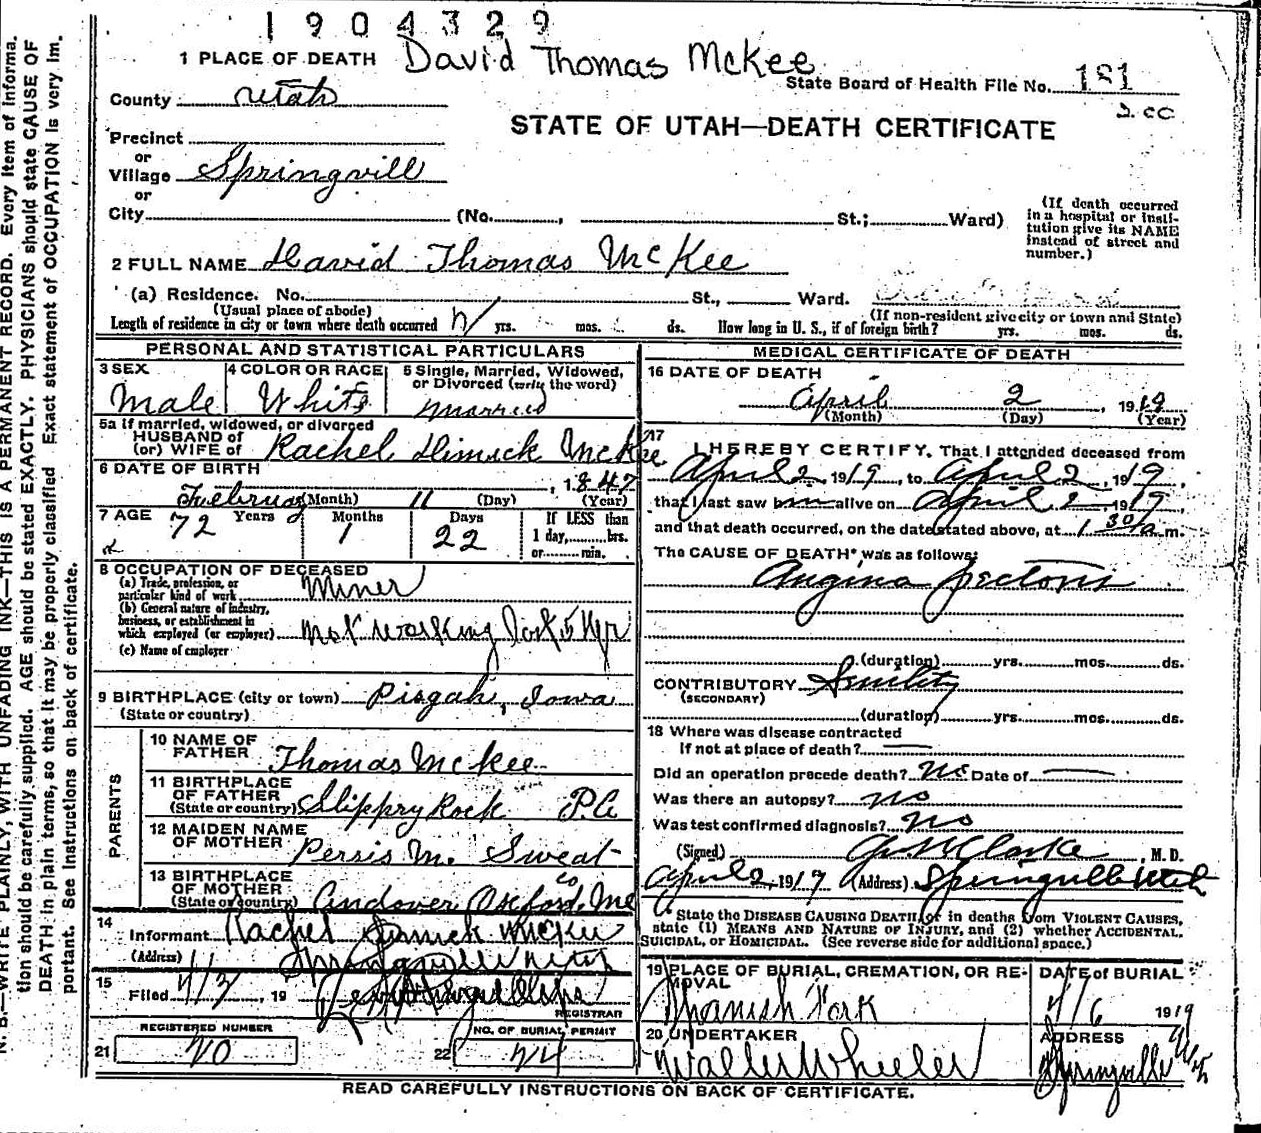 1904329
1 PLACE OF DEATH David Thomas McKee
State Board of Health File No. 181
County Utah
STATE OF UTAH—DEATH CERTIFICATE
Precinct
or
Village Springvill
or
City (No. , St.; Ward)
(If death occurred in a hospital or insti-
tution give its NAME
instead of street and
number.)
2 FULL NAME David Thomas McKee
(a) Residence. No. St., Ward.
(Usual place of abode) (If non-resident give city or town and State)
Length of residence in city or town where death occurred yrs. mos. ds. How long in U. S., if of foreign birth? yrs. mos. ds.
PERSONAL AND STATISTICAL PARTICULARS
3 SEX Male
4 COLOR OR RACE White
5 Single, Married, Widowed,
or Divorced (write the word)
Married
5a If married, widowed, or divorced
HUSBAND of
(or) WIFE of Rachel Dimick McKee
6 DATE OF BIRTH
February (Month) 11 (Day), 1847 (Year)
7 AGE 72 Years 1 Months 22 Days
If LESS than
1 day, hrs.
or min.
8 OCCUPATION OF DECEASED
(a) Trade, profession, or
particular kind of work Miner
(b) General nature of industry,
business, or establishment in
which employed (or employer) not working
(c) Name of employer
9 BIRTHPLACE (city or town) Pisgah, Iowa
(State or country)
PARENTS
10 NAME OF
FATHER Thomas McKee
11 BIRTHPLACE
OF FATHER
(State or country) Slippry Rock Pa
12 MAIDEN NAME
OF MOTHER Persis M. Sweat
13 BIRTHPLACE
OF MOTHER
(State or country) Andover Oxford Co, Me
14 Informant Rachel Dimick McKee
(Address) Springville Utah
15 Filed 4/3, 19
REGISTRAR
REGISTERED NUMBER
21 20
NO. OF BURIAL PERMIT
22 24
MEDICAL CERTIFICATE OF DEATH
16 DATE OF DEATH
April 2, 1919
(Month) (Day) (Year)
17 I HEREBY CERTIFY, That I attended deceased from
April 2, 1919, to April 2, 1919,
that I last saw him alive on April 2, 1919
and that death occurred, on the date stated above, at 1 30/a m.
The CAUSE OF DEATH* was as follows:
Angina Pectoris
(duration) yrs. mos. ds.
CONTRIBUTORY Senility
(SECONDARY)
(duration) yrs. mos. ds.
18 Where was disease contracted
If not at place of death?
Did an operation precede death? no Date of
Was there an autopsy? no
Was test confirmed diagnosis? no
(Signed) Clarke, M. D.
April 2, 1919 (Address) Springville Utah
*State the DISEASE CAUSING DEATH, or in deaths from VIOLENT CAUSES,
state (1) MEANS AND NATURE OF INJURY, and (2) whether ACCIDENTAL,
SUICIDAL, or HOMICIDAL. (See reverse side for additional space.)
19 PLACE OF BURIAL, CREMATION, OR RE-
MOVAL
Spanish Fork
DATE of BURIAL
4/6 1919
20 UNDERTAKER
Walter Wheeler
ADDRESS
Springville
READ CAREFULLY INSTRUCTIONS ON BACK OF CERTIFICATE.
N. B.—WRITE PLAINLY, WITH UNFADING INK—THIS IS A PERMANENT RECORD. Every item of informa-
tion should be carefully supplied. AGE should be stated EXACTLY. PHYSICIANS should state CAUSE OF
DEATH in plain terms, so that it may be properly classified. Exact statement of OCCUPATION is very im-
portant. See instructions on back of certificate.